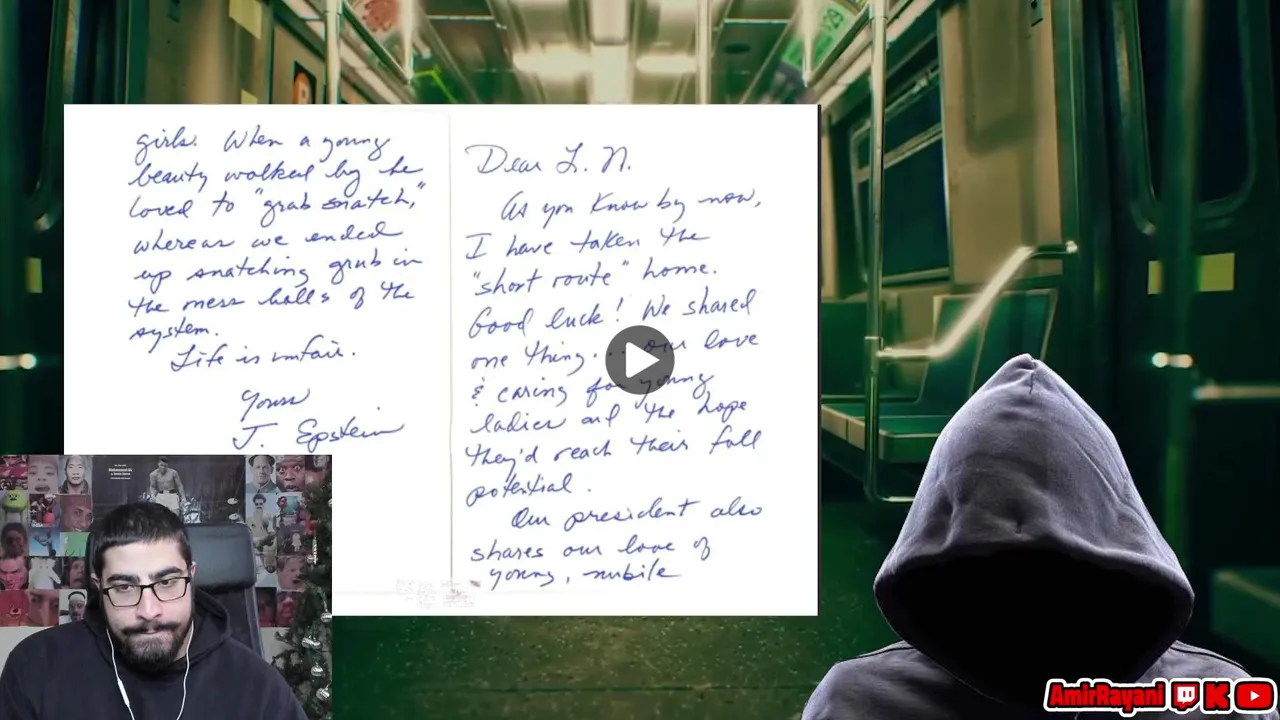 girls. When a young
beauty walked by he
loved to "grab snatch,"
whereas we ended
up snatching grub in
the mess halls of the
system.
Life is unfair.
Yours
J. Epstein
Dear L. N.
As you know by now,
I have taken the
"short route" home.
Good luck! We shared
one thing... our love
& caring for young
ladies and the hope
they'd reach their full
potential.
Our president also
shares our love of
young, nubile
AmirRayani